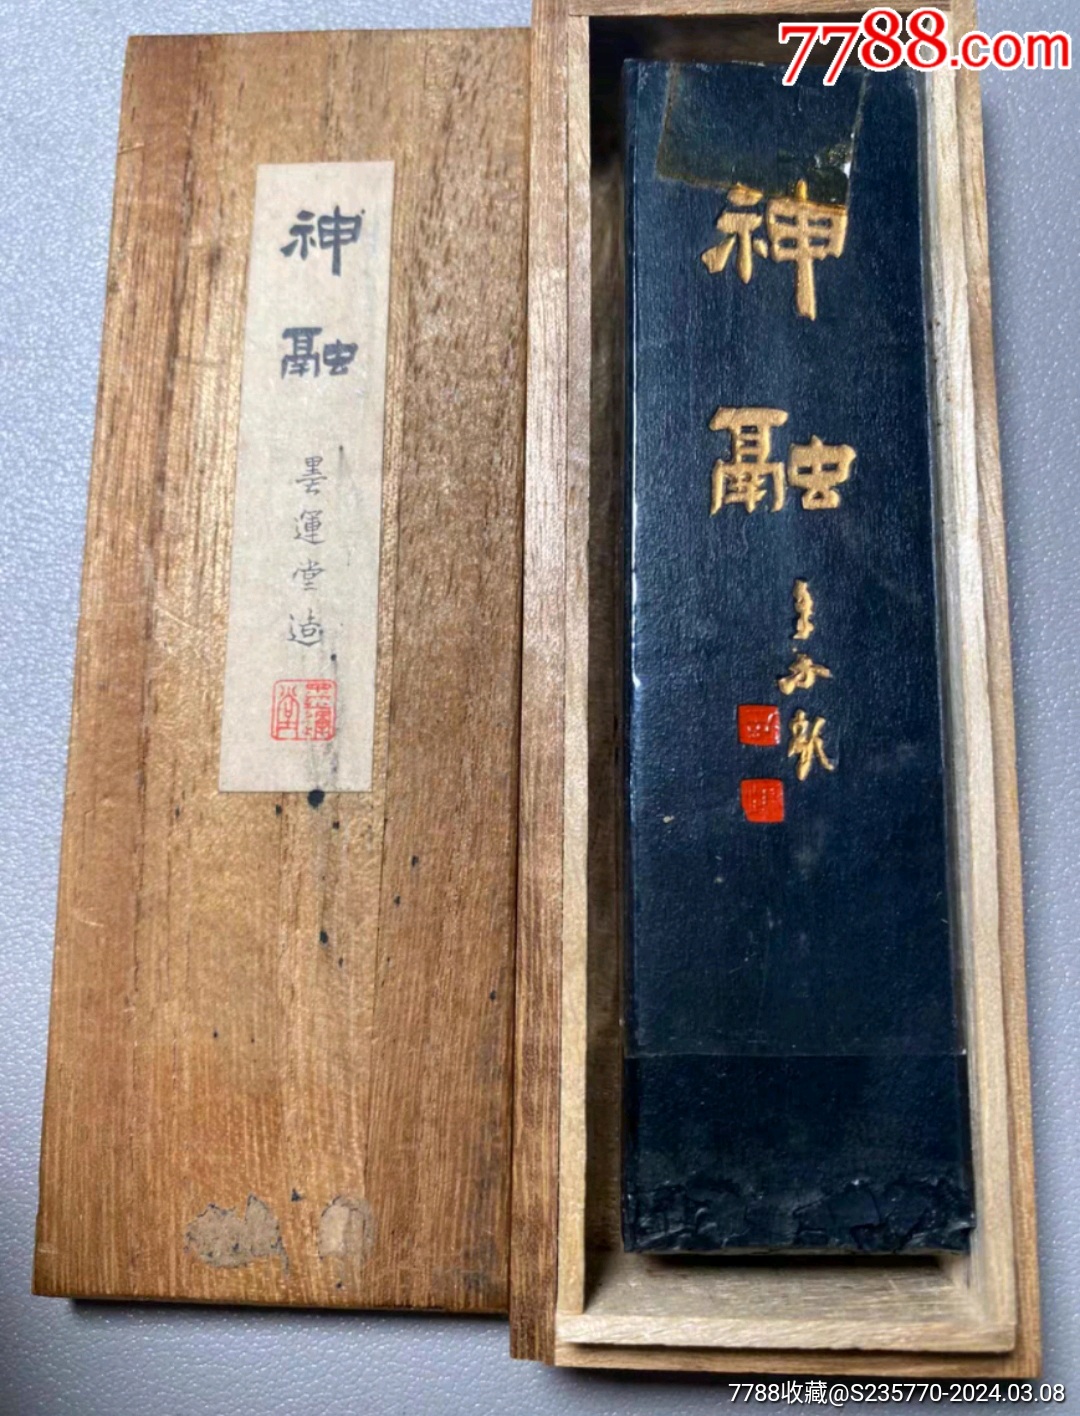 7788.com
神融
墨運堂造
墨運堂
神融
7788收藏@S235770-2024.03.08